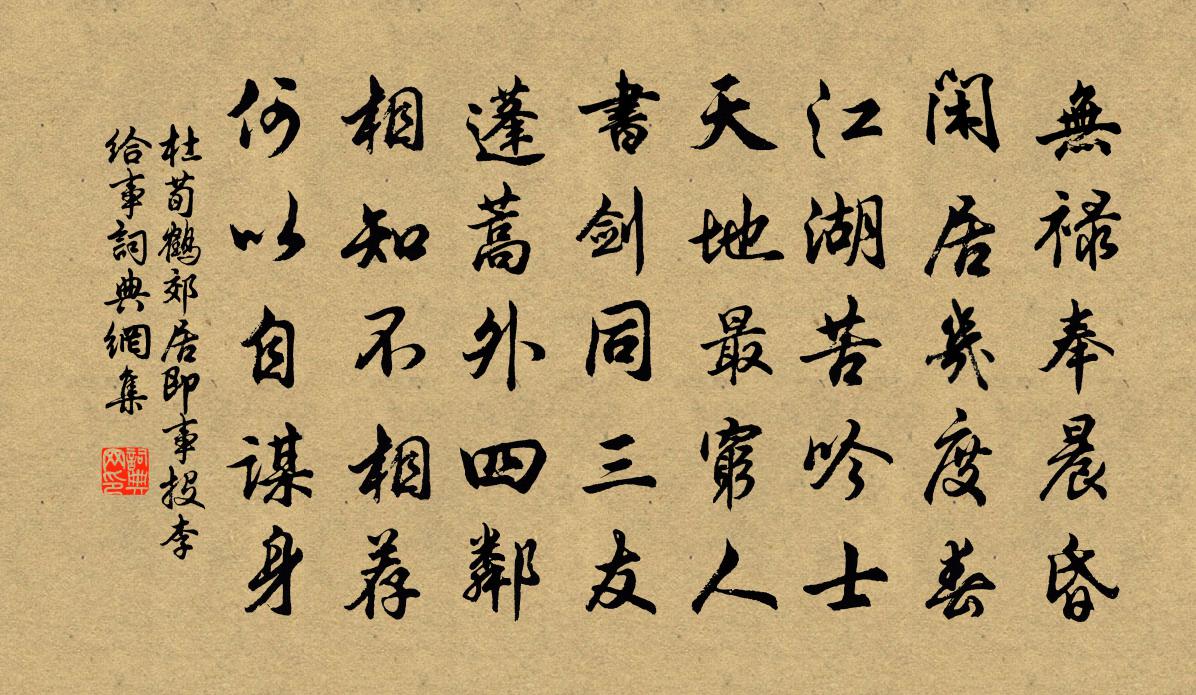 無禄奉晨昏
閑居幾度春
江湖苦吟士
天地最窮人
書劍同三友
蓬蒿外四鄰
相知不相荐
何以自謀身
杜荀鶴郊居即事投李
給事詞典網集
詞典网印